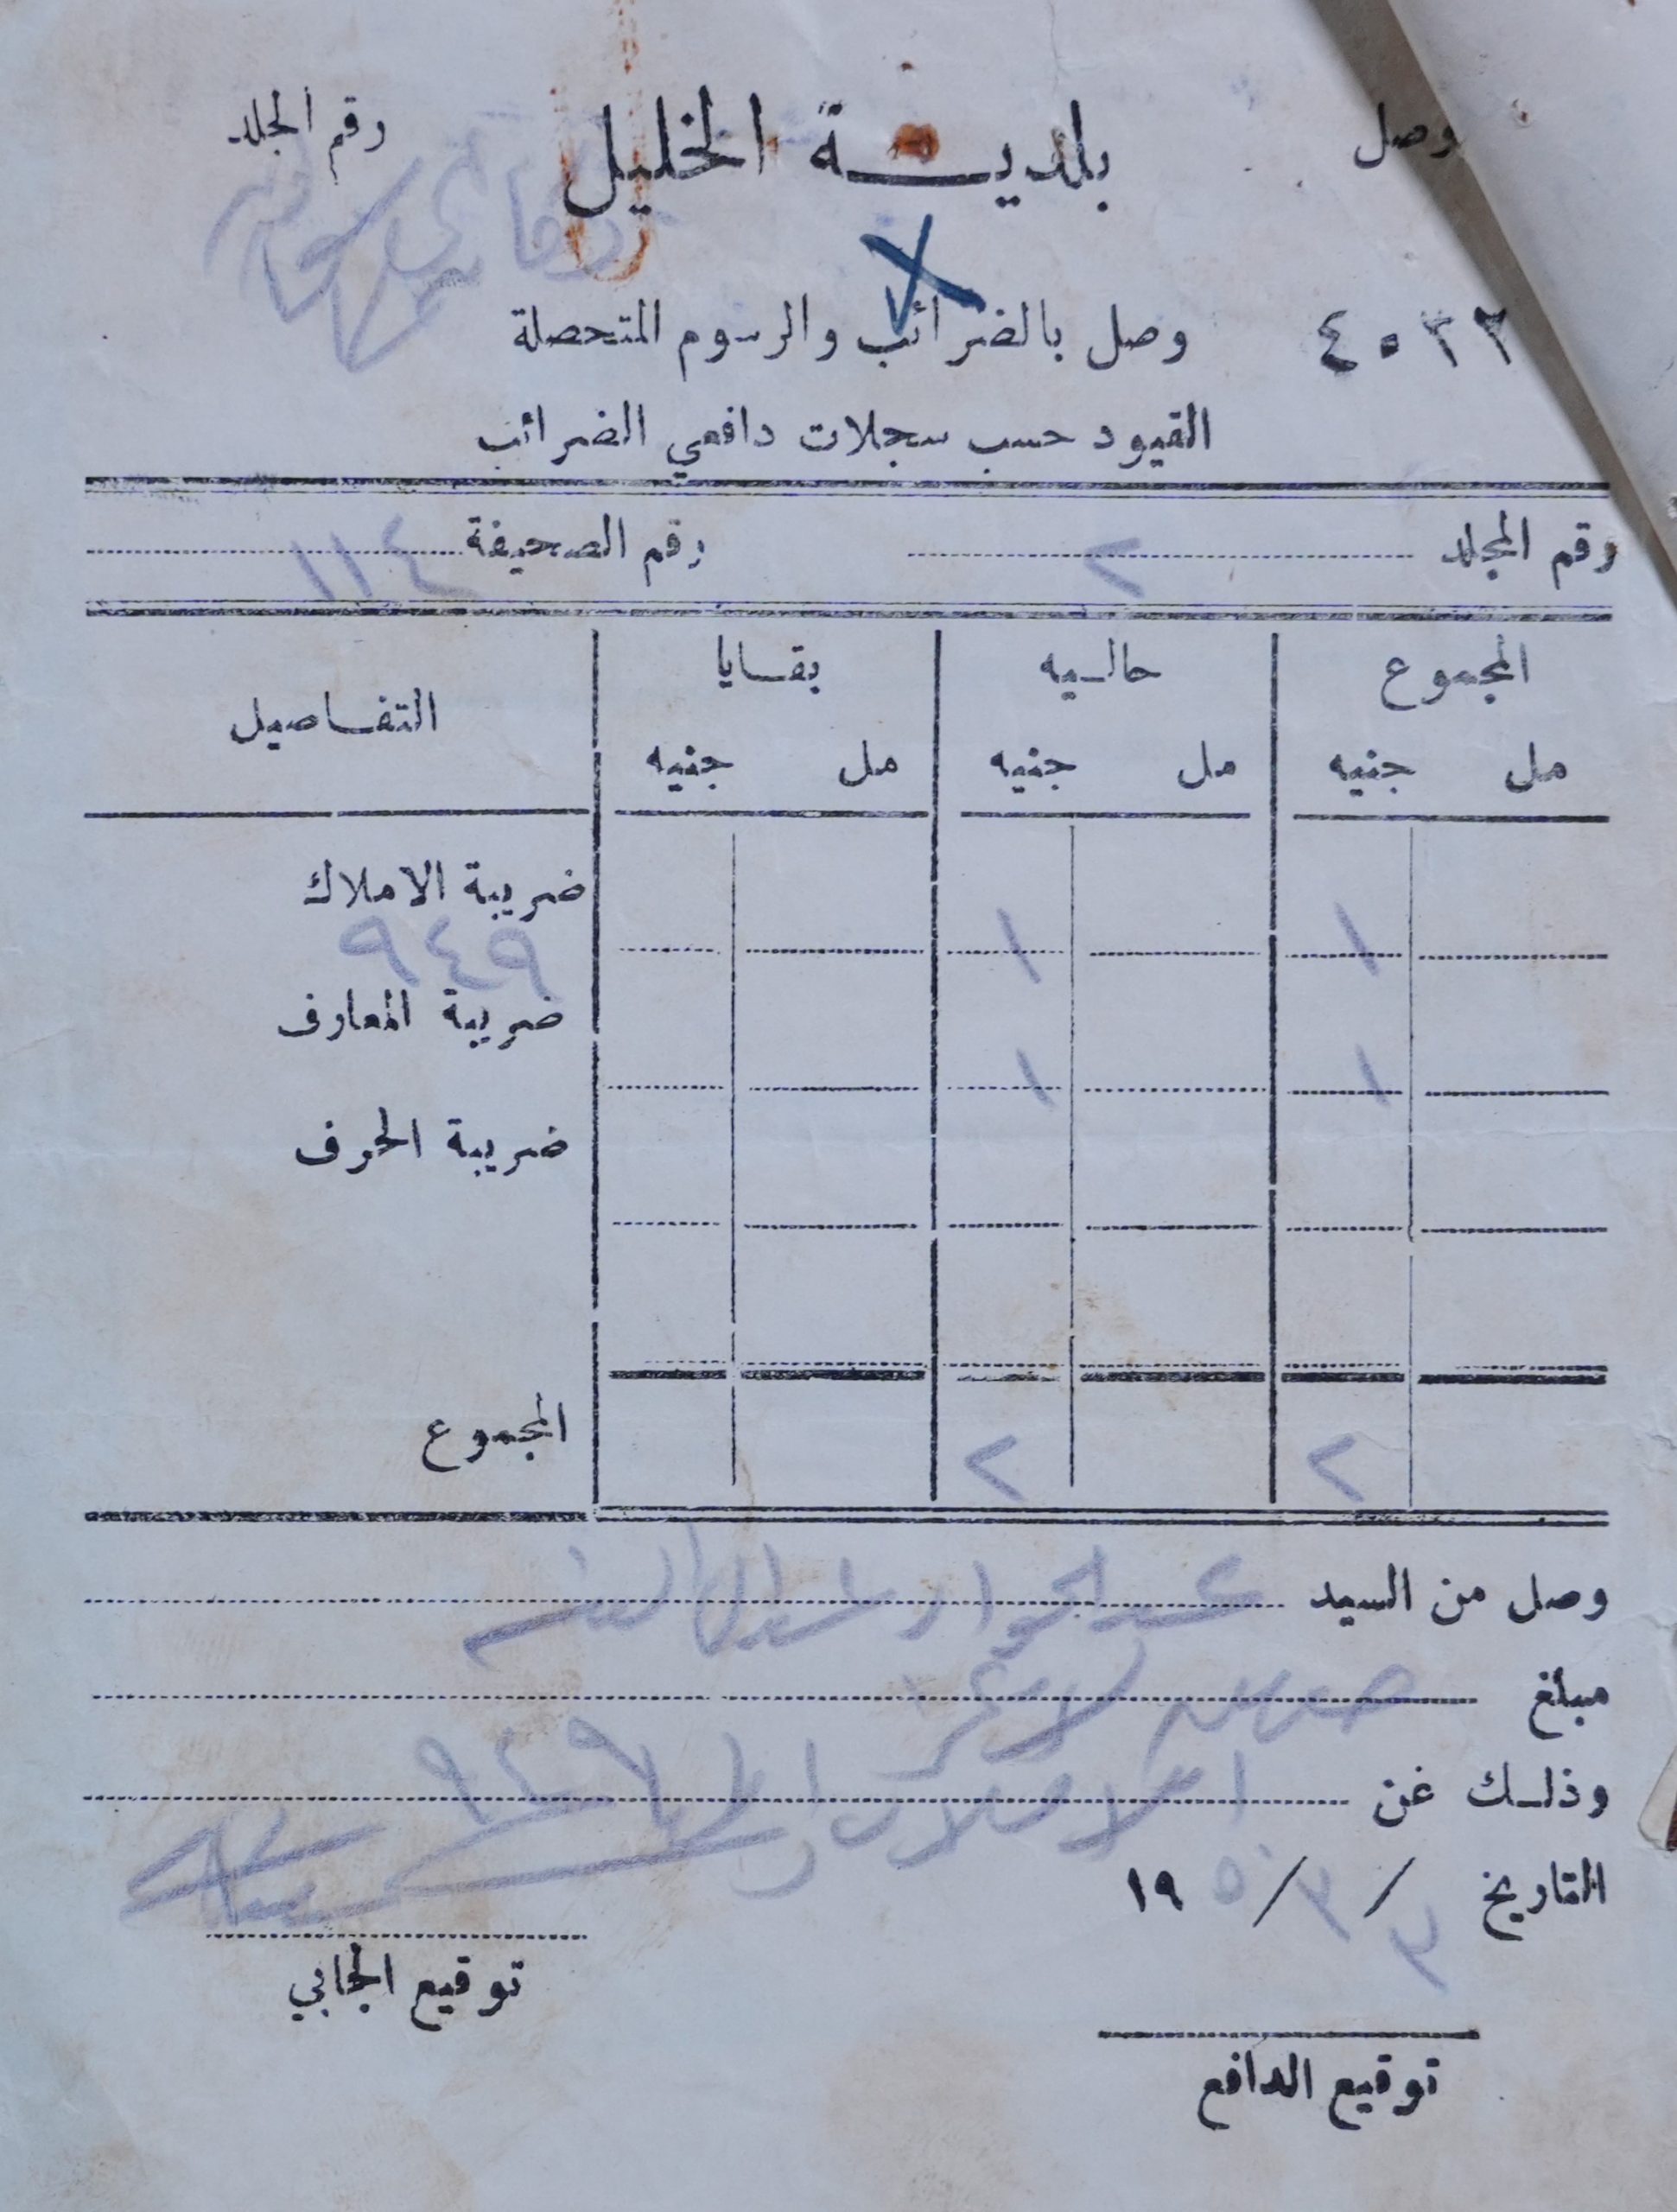 وصل بلديـــة الخليل رقم الجلد
٤٠٢٢ وصل بالضرائب والرسوم المتحصلة
القيود حسب سجلات دافعي الضرائب
رقم المجلد ٢ رقم الصحيفة ١١٤
المجموع حاليه بقايا التفاصيل
مل جنيه مل جنيه مل جنيه
ضريبة الاملاك
١ ١ ٩٤٩
ضريبة المعارف
١ ١
ضريبة الحرف
المجموع
٢ ٢
وصل من السيد عبد الجواد
مبلغ
وذلك عن الاملاك ٩٤٩
التاريخ ٣ / ٣ / ١٩٥٠
توقيع الجابي
توقيع الدافع